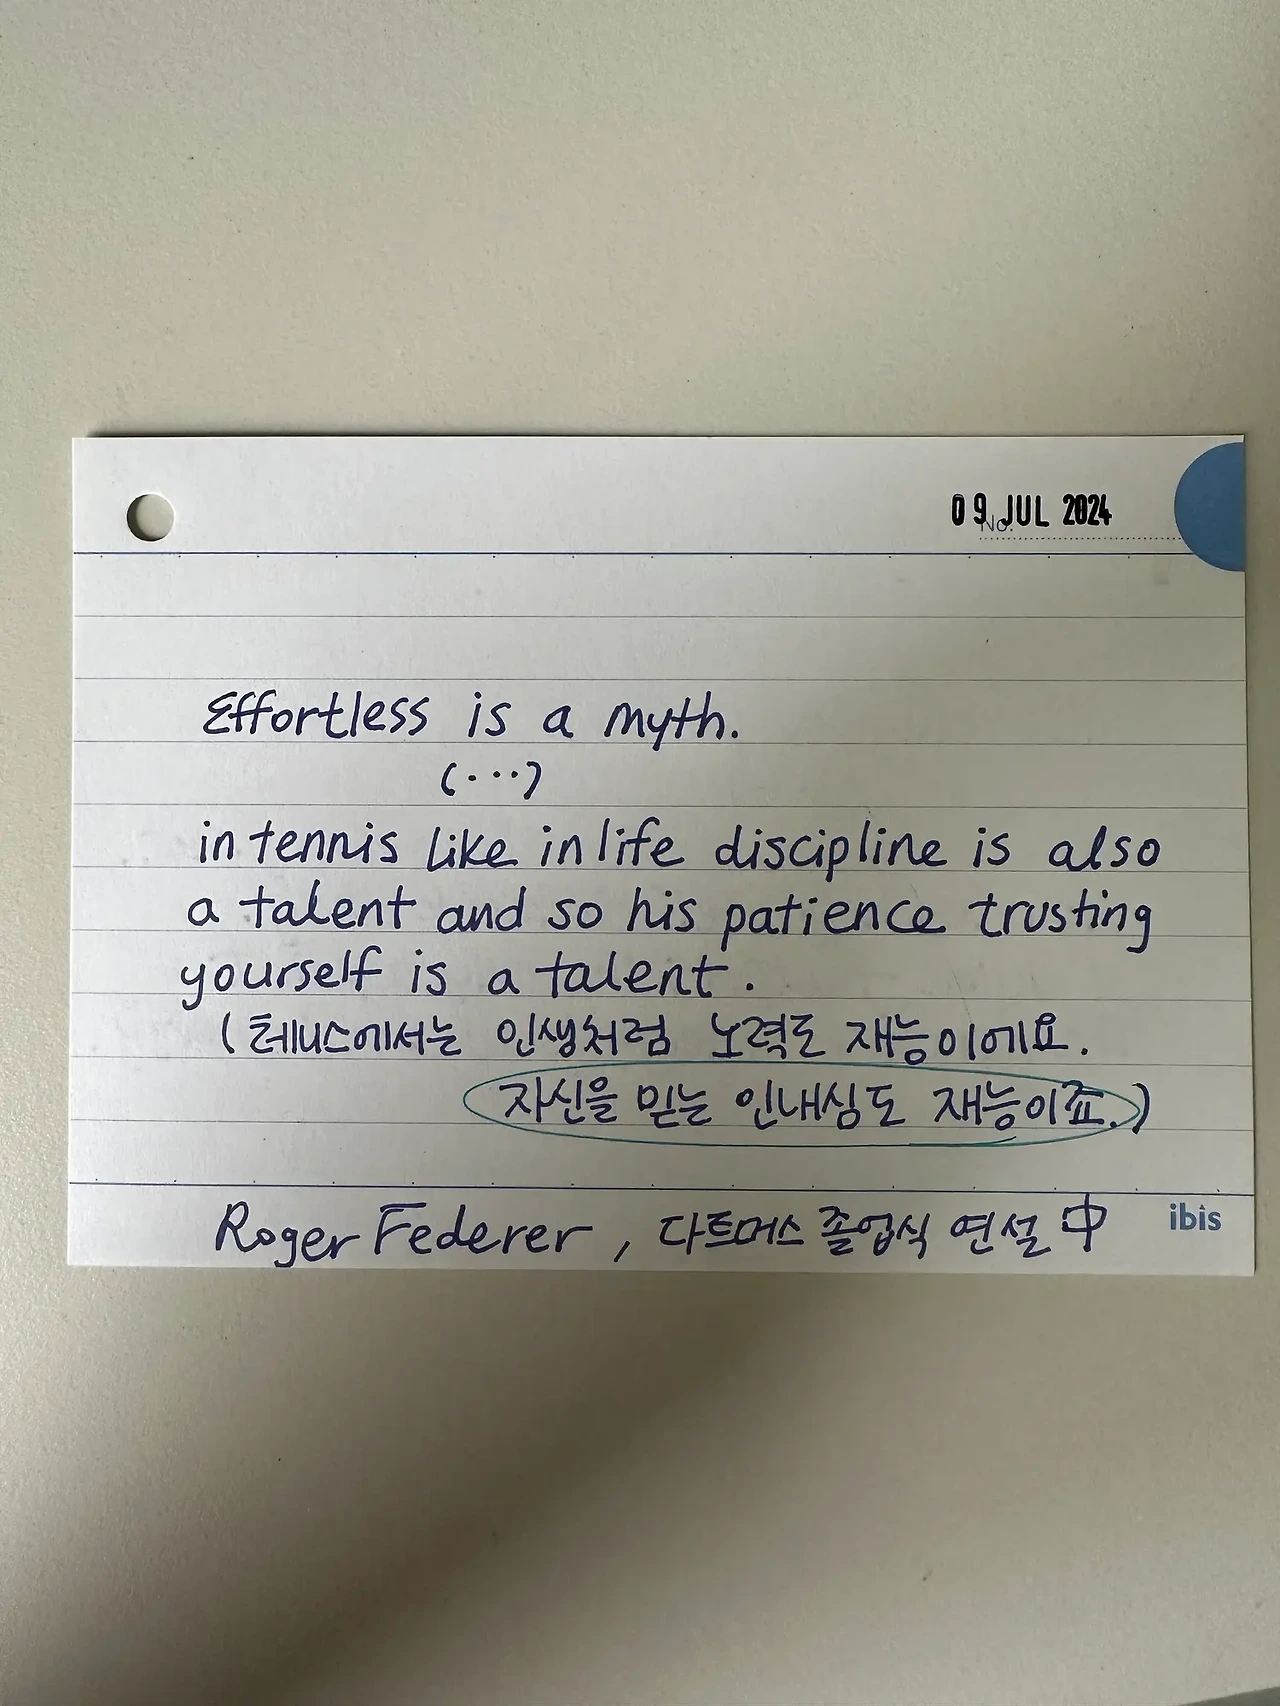 09 JUL 2024
No.
Effortless is a myth.
(...)
in tennis like in life discipline is also
a talent and so his patience trusting
yourself is a talent.
(테니스에서는 인생처럼 노력도 재능이에요.
자신을 믿는 인내심도 재능이죠.)
Roger Federer, 다트머스 졸업식 연설 中
ibis